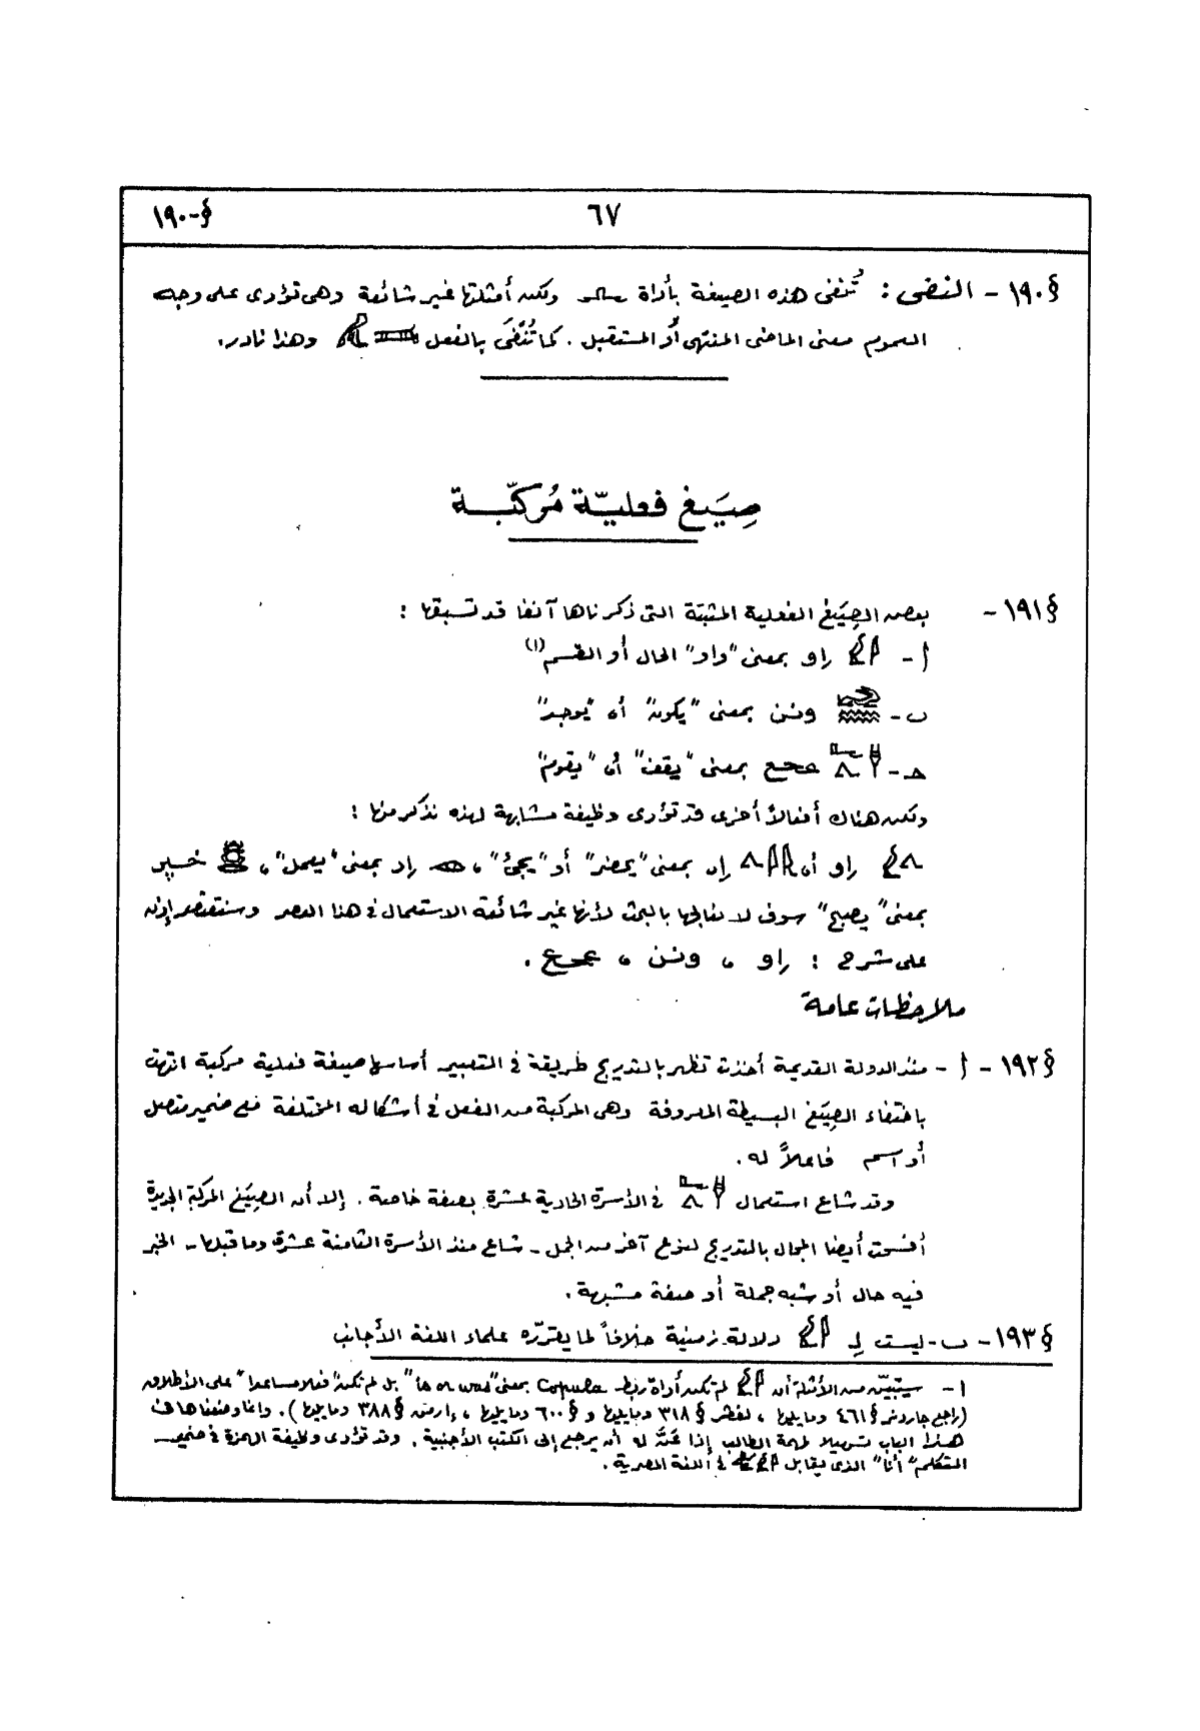 §-١٩٠
٦٧
§١٩٠ - النفى : تُنفى هذه الصيغة بأداة ولكن أمثلتها غير شائعة وهى تؤدى على وجه
العموم معنى الماضى المنتهى أو المستقبل . كما تُنفَى بالفعل وهذا نادر .
صِيَغ فعليّة مُركّبة
§١٩١ - بعض الصِيَغ الفعلية المثبتة التى ذكرناها آنفا قد تسبقها :
أ - راو بمعنى "واو" الحال أو القسم (١)
ب - ونن بمعنى "يكون" أو "يوجد"
حـ - عحع بمعنى "يقف" أو "يقوم"
ولكن هناك أفعالاً أخرى قد تؤدى وظيفة مشابهة لهذه نذكر منها :
راو أو بمعنى "يحضر" أو "يجئ" ، بمعنى "يعمل" ، خبر
بمعنى "يصبح" سوف لا نعالجها بالبحث لأنها غير شائعة الاستعمال فى هذا العصر وسنقتصر إذن
على شرح : راو ، ونن ، عحع .
ملاحظات عامة
§١٩٢ - أ - منذ الدولة القديمة أخذت تظهر بالتدريج طريقة فى التعبير أساسها صيغة فعلية مركبة انتهت
باختفاء الصِيَغ البسيطة المعروفة وهى المركبة من الفعل فى أشكاله المختلفة مع ضمير متصل
أو اسم فاعلاً له .
وقد شاع استعمال فى الأسرة الحادية عشرة بصفة خاصة . إلا أن الصِيَغ المركبة الجديدة
أفسحت أيضا المجال بالتدريج لنوع آخر من الجمل - شاع منذ الأسرة الثامنة عشرة وما قبلها - الخبر
فيه حال أو شبه جملة أو صفة مشبهة .
§١٩٣ - ب - ليست لِـ دلالة زمنية خلافاً لما يقرره علماء اللغة الأجانب
١ - سيتبيّن من الأمثلة أن لم تكن أداة ربط Copula بمعنى "is or was" بل لم تكن "فعلا مساعدا" على الإطلاق
(راجع جاردنر § ٤٦١ وما يليها ، لفڤر § ٣١٨ وما يليها و § ٦٠٠ وما يليها ، إرمن § ٣٨٨ وما يليها) . وإنما وضعناها فى
هذا الباب تسهيلا لمهمة الطالب إذا عَنَّ له أن يرجع إلى الكتب الأجنبية . وقد تؤدى وظيفة الهمزة فى ضمير
المتكلم "أنا" الذى يقابل فى اللغة المصرية .